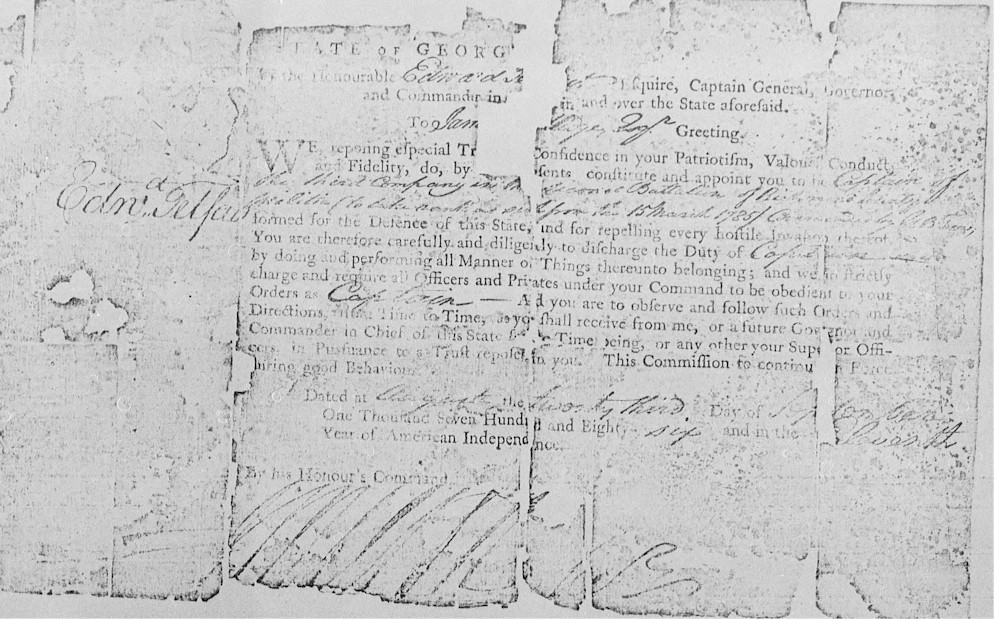 TATE OF GEORG
the Honourable Edward Esquire, Captain General, Governor
and Commander in and over the State aforesaid.
To Jam Esqr Greeting,
WE, reposing especial Tr Confidence in your Patriotism, Valour, Conduct
and Fidelity, do, by sents, constitute and appoint you to be Captain of
the third Company in Second Battalion of
to take rank as upon the 15 March 1785
formed for the Defence of this State, and for repelling every hostile Invasion thereof.
Edwd. Telfair
You are therefore carefully and diligently to discharge the Duty of Captain
by doing and performing all Manner of Things thereunto belonging; and we do strictly
charge and require all Officers and Privates under your Command to be obedient to your
Orders as Captain — And you are to observe and follow such Orders and
Directions, from Time to Time, as you shall receive from me, or a future Governor and
Commander in Chief of this State for the Time being, or any other your Superior Offi-
cers, in Pursuance to a Trust reposed in you. This Commission to continue in Force
during good Behaviour.
Dated at Augusta the twenty third Day of September
One Thousand Seven Hundred and Eighty-six and in the Eleventh
Year of American Independence.
By his Honour's Command,